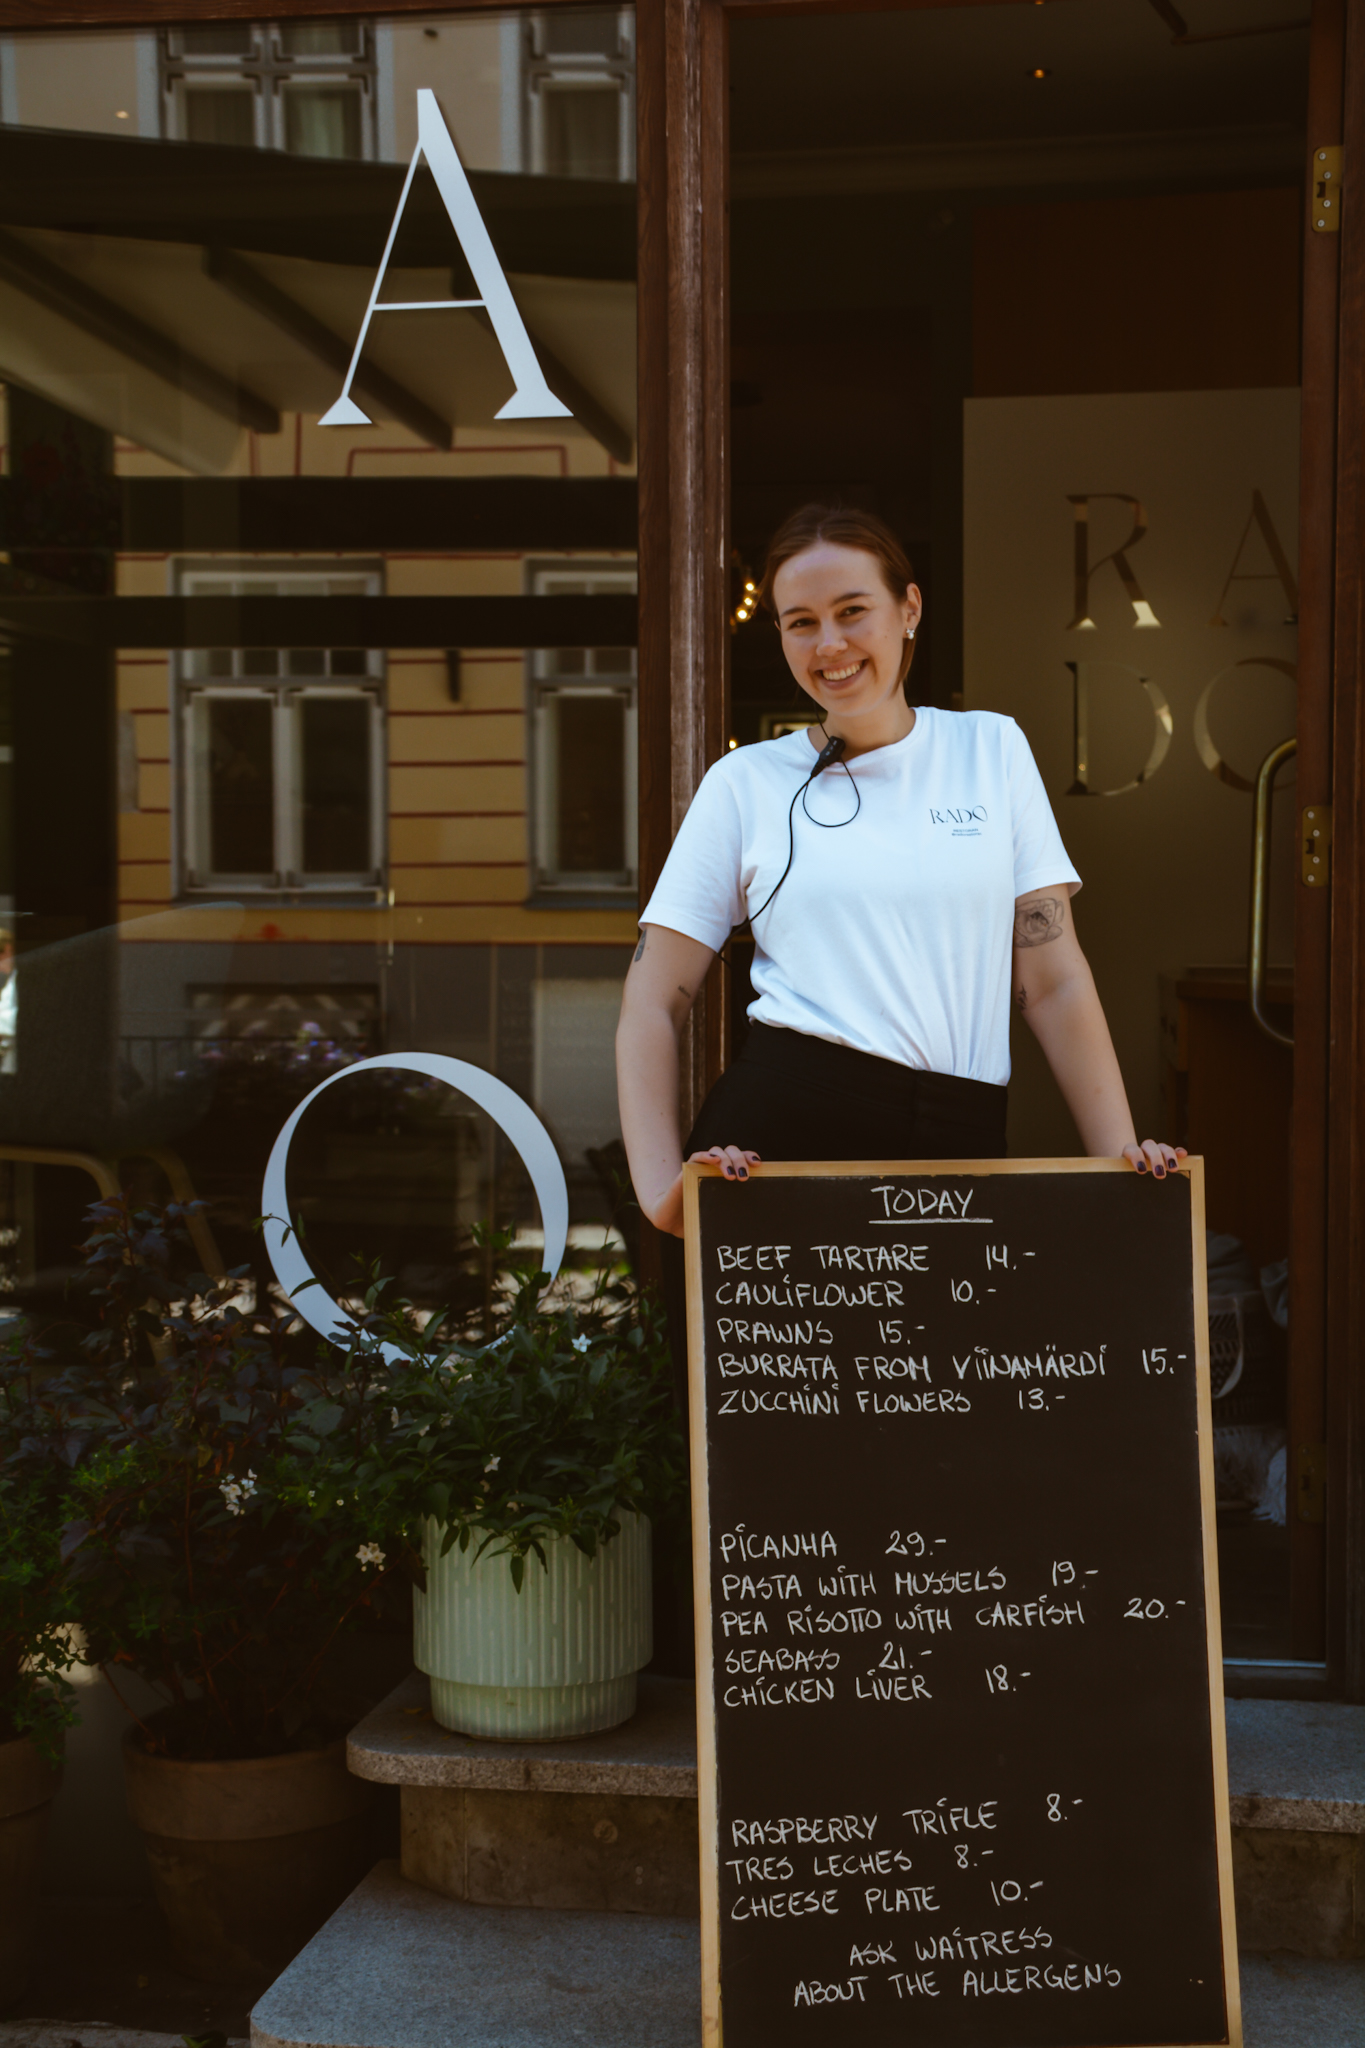 A
O
RA
DO
RADO
TODAY
BEEF TARTARE 14.-
CAULIFLOWER 10.-
PRAWNS 15.-
BURRATA FROM VIINAMÄRDI 15.-
ZUCCHINI FLOWERS 13.-
PICANHA 29.-
PASTA WITH MUSSELS 19.-
PEA RISOTTO WITH CARFISH 20.-
SEABASS 21.-
CHICKEN LIVER 18.-
RASPBERRY TRIFLE 8.-
TRES LECHES 8.-
CHEESE PLATE 10.-
ASK WAITRESS
ABOUT THE ALLERGENS